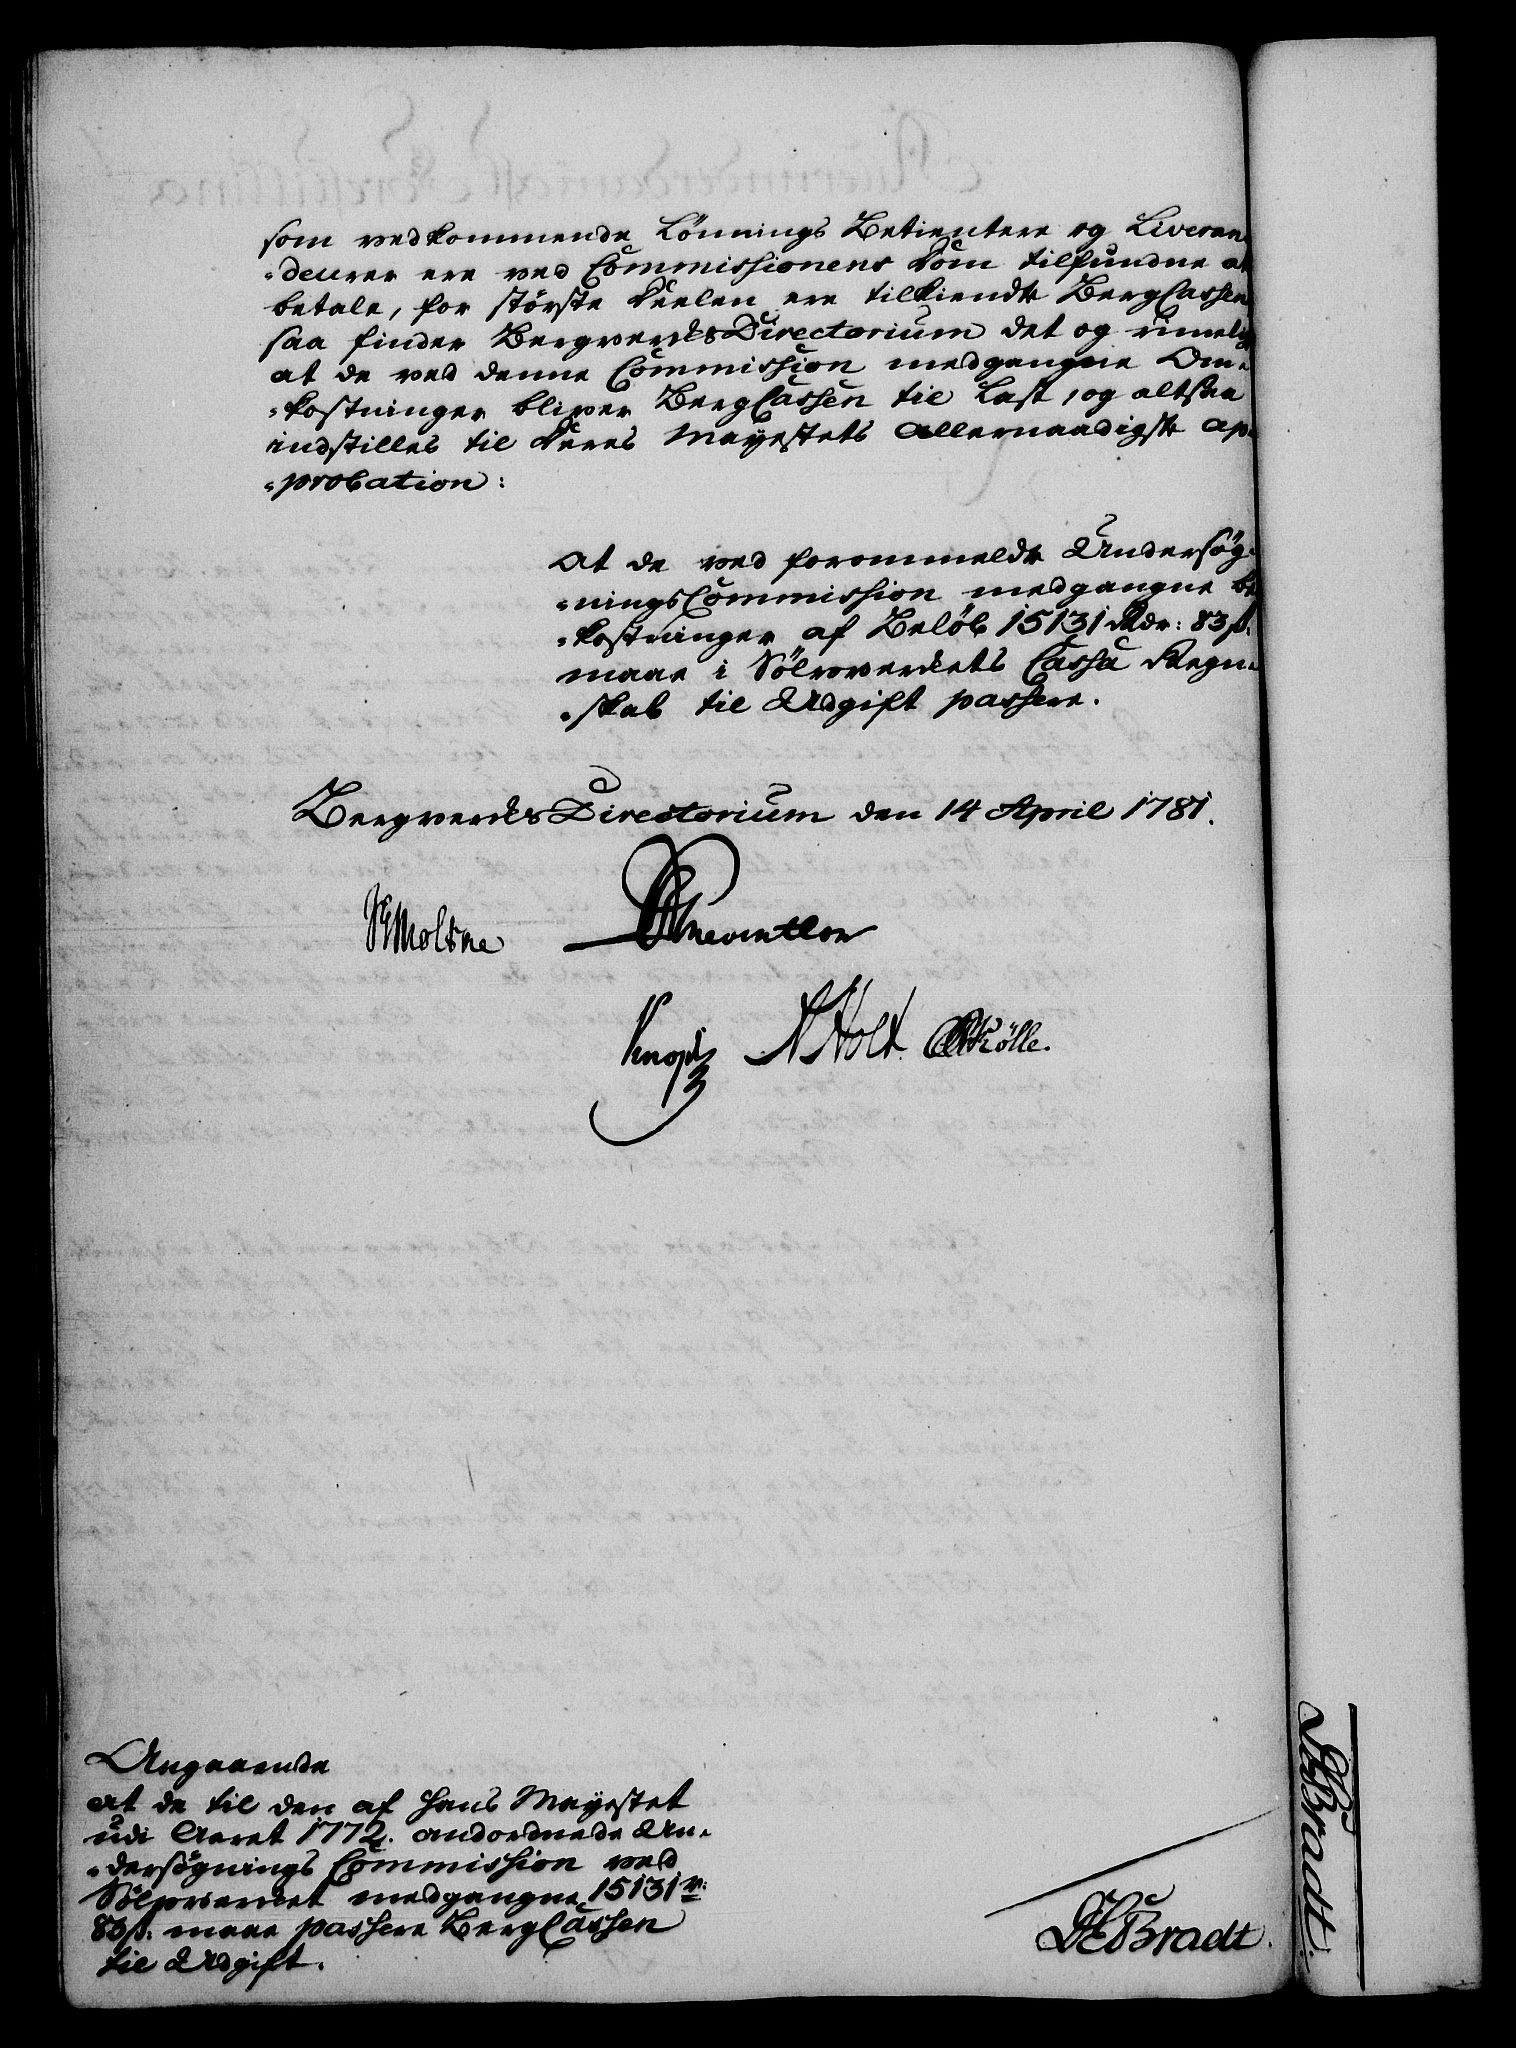 som vedkommende Lönnings Betientere og Liveran
-deurer ere ved Commissionens Dom tilfundne at
betale, for störste Deelen ere tilkiendt BergCassen
saa finder BergverksDirectorium det og rimelig
at de ved denne Commission medgangne Om-
-kostninger bliver BergCassen til Last, og altsaa
indstilles til Deres Mayestets allernaadigste ap-
-probation:
At de ved forommeldte Undersög-
-ningsCommission medgangne be
-kostninger af Belöb 15131 Rdr: 83 ß.
maae i Sölvverkets Cassa Regn-
-skab til Udgift passere.
BergverksDirectorium den 14 April 1781.
Moltke Reventlow
Knoph Holt Rölle.
Angaaende
at de til den af Hans Mayestet
udi Aaret 1772. anordnede Un-
-dersögnings Commission ved
Sölvverket medgangne 15131 r:
83 ß: maae passere BergCassen
til Udgift.
Bradt.
Bradt.